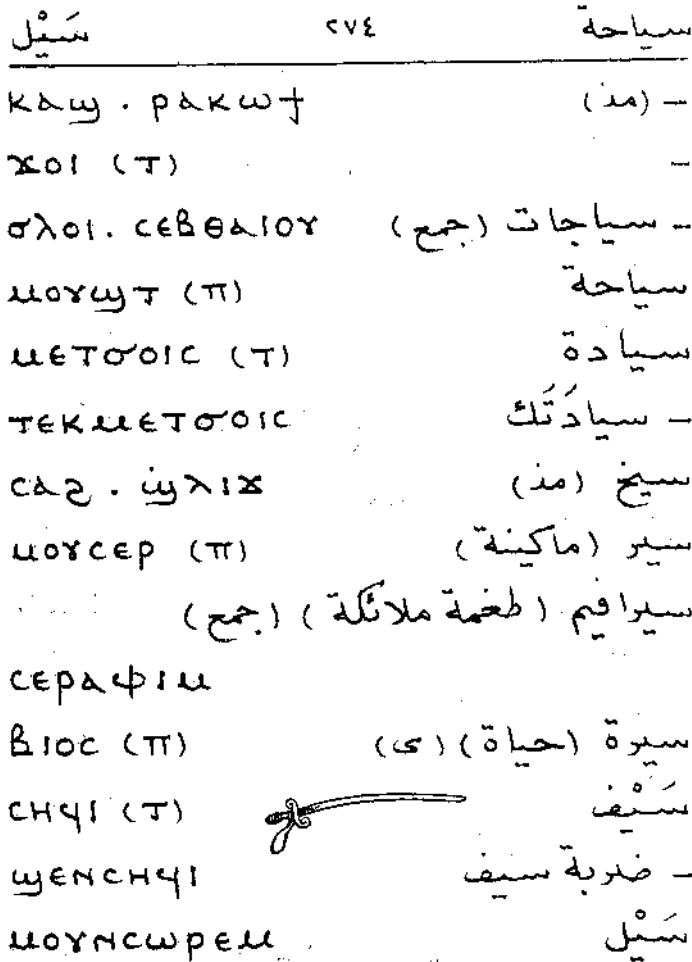 سياحة ٢٧٤ سَيْل
– (مذ) ⲕⲁϣ . ⲣⲁⲕⲱϯ
– ϫⲟⲓ (ⲧ)
– سياجات (جمع) ϭⲗⲟⲓ. ⲥⲉⲃⲑⲁⲓⲟⲩ
سياحة ⲙⲟⲩϣⲧ (ⲡ)
سيادة ⲙⲉⲧϭⲟⲓⲥ (ⲧ)
– سيادَتَك ⲧⲉⲕⲙⲉⲧϭⲟⲓⲥ
سيخ (مذ) ⲥⲁϩ . ϣ̀ⲗⲓϫ
سير (ماكينة) ⲙⲟⲩⲥⲉⲣ (ⲡ)
سيرافيم (طغمة ملائكة) (جمع)
ⲥⲉⲣⲁⲫⲓⲙ
سيرة (حياة) (ى) ⲃⲓⲟⲥ (ⲡ)
سَيْف ⲥⲏϥⲓ (ⲧ)
– ضربة سيف ϣⲉⲛⲥⲏϥⲓ
سَيْل ⲙⲟⲩⲛⲥⲱⲣⲉⲙ